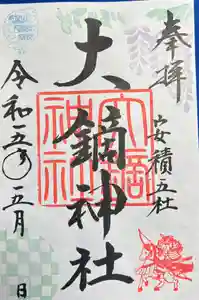 奉拝
安積五社
大鏑神社
令和五年五月 日